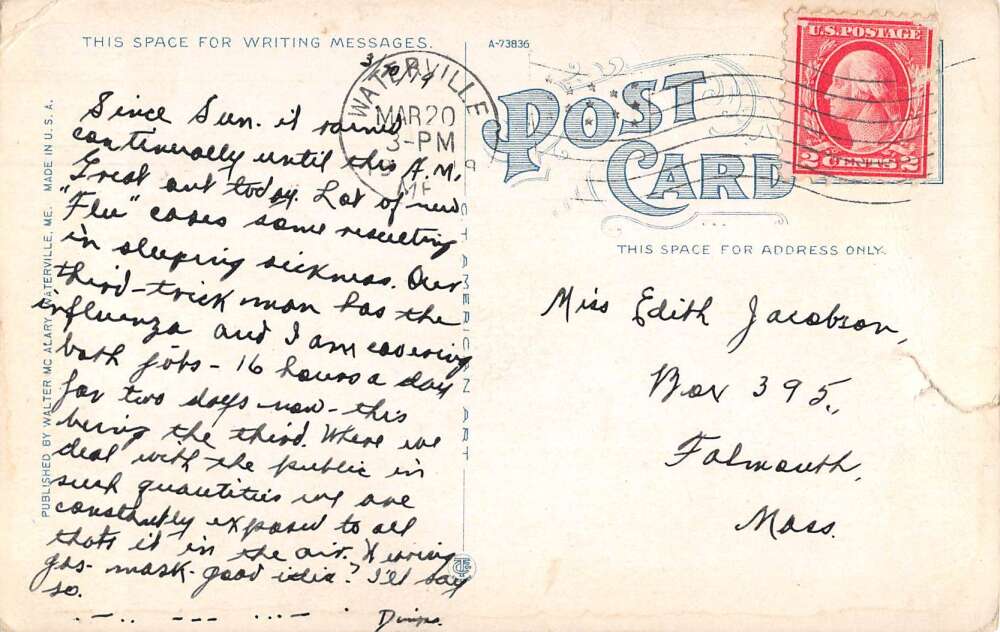 THIS SPACE FOR WRITING MESSAGES.
3/20/19
Since Sun. it rained
continually until this A.M.
Great out today. Lot of new
"Flu" cases some resulting
in sleeping sickness. Our
third-trick man has the
influenza and I am covering
both jobs - 16 hours a day
for two days now - this
being the third. Where we
deal with the public in
such quantities we are
constantly exposed to all
thats it in the air. Wearing
gas-mask good idea? I'll say
so.
.-.. --- ...- .
PUBLISHED BY WALTER MC ALARY, WATERVILLE, ME. MADE IN U.S.A.
CT AMERICAN ART
A-73836
WATERVILLE
MAR 20
3-PM
ME
POST CARD
U.S. POSTAGE
2 CENTS 2
THIS SPACE FOR ADDRESS ONLY.
Miss Edith Jacobson,
Box 395,
Falmouth,
Mass.